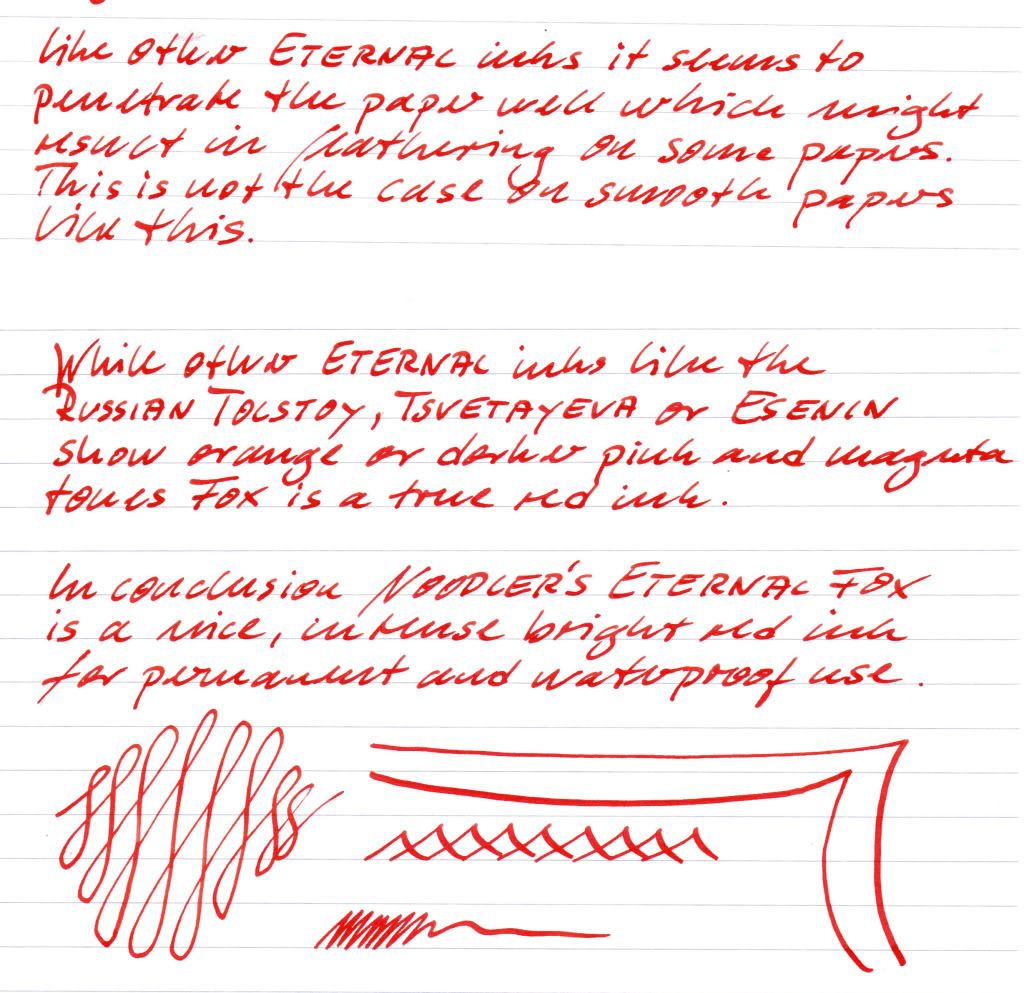 like other ETERNAL inks it seems to
penetrate the paper well which might
result in feathering on some papers.
This is not the case on smooth papers
like this.
While other ETERNAL inks like the
RUSSIAN TOLSTOY, TSVETAYEVA or ESENIN
show orange or darker pink and magenta
tones FOX is a true red ink.
In conclusion NOODLER'S ETERNAL FOX
is a nice, intense bright red ink
for permanent and waterproof use.